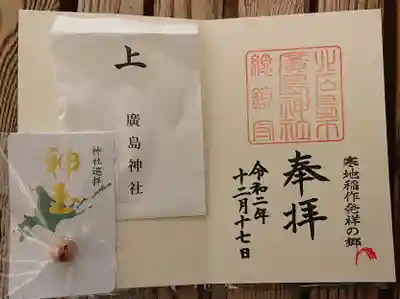 上
廣島神社
神社巡拝
神玉
北広島市
廣島神社
総鎮守
奉拝
寒地稲作発祥の郷
令和二年
十二月十七日